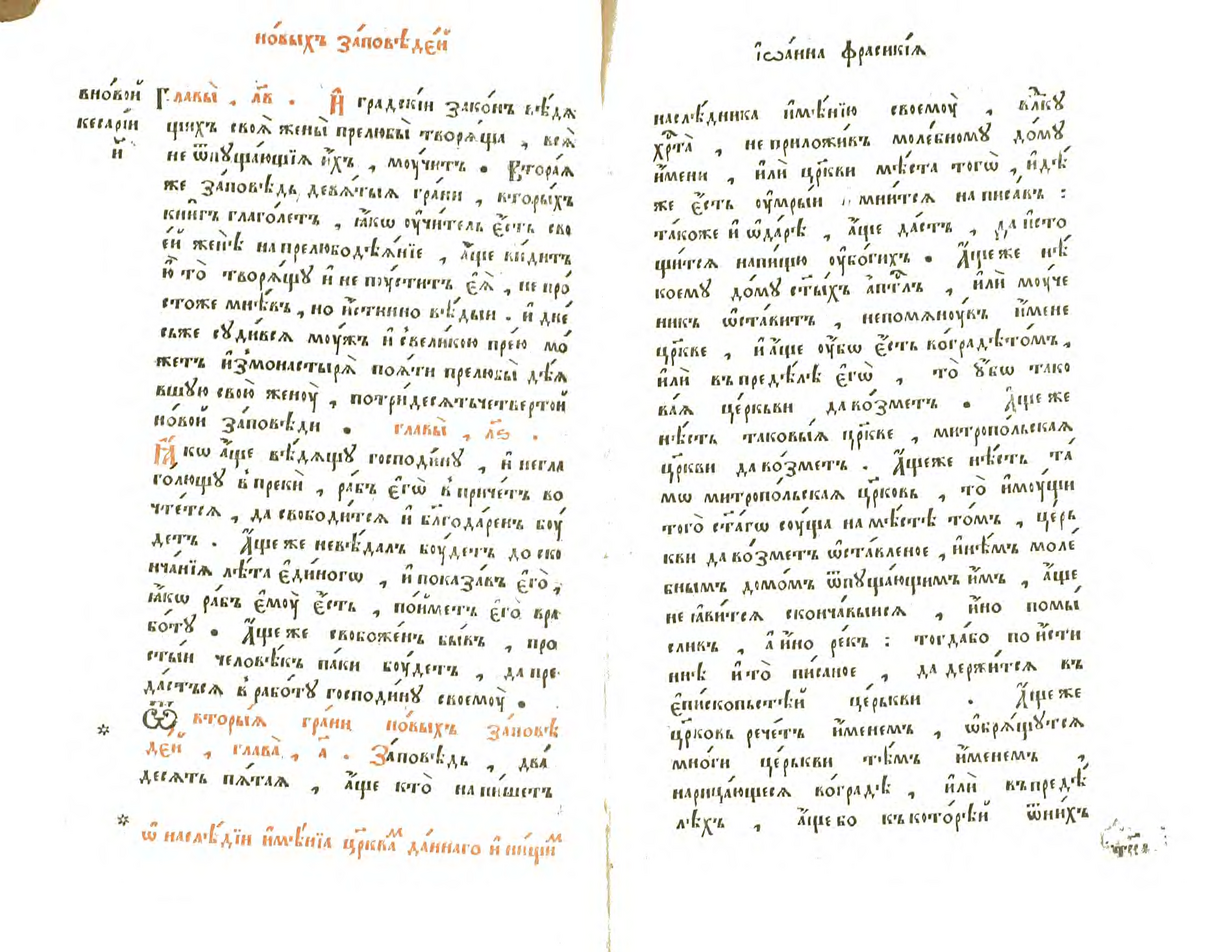 но́выхъ за́повѣде́й
вно́вой
кесарі́и
и҆
Главы̀ , л҃в . И҆ градскі́и зако́нъ вѣ́дѧ
щихъ своѧ̀ жены̀ прелюбы̀ творѧ́ща , всѧ̀
не ѿпуща́ющїѧ и҆́хъ , моу́читъ . Втора́ѧ
же за́повѣдь девѧ́тыѧ гра́ни , вторы́хъ
кни́гъ глаго́летъ , ꙗ҆́кѡ оу҆чи́тель є҆́сть сво
е́й женѣ̀ напрелюбодѣѧ́нїе , а҆́ще ви́дитъ
ю҆̀ то̀ творѧ́щꙋ и҆ не пꙋ́ститъ є҆ѧ̀ , не про́
стоже мнѣ́въ , но и҆́стинно вѣ́дыи . и҆ дне́
сьже сꙋди́всѧ моу́жъ и҆ свели́кою пре́ю мо́
жетъ и҆змонастырѧ̀ поѧ́ти прелюбы̀ дѣ́ѧ
вшꙋю свою̀ женоу̀ , потридесѧтьчетвертой
но́вой за́повѣди . главы̀ , л҃ѕ .
Ꙗ҆́кѡ а҆́ще вѣ́дѧщꙋ господи́нꙋ , и҆ негла
го́лющꙋ впрекѝ , ра́бъ є҆гѡ̀ впри́четъ во
чте́тсѧ , да свободи́тсѧ и҆ бл҃года́ренъ боу́
детъ . А҆́ще же невѣ́далъ боу́детъ до ско
нча́нїѧ лѣ́та є҆ди́ногѡ , и҆ показа́въ є҆го̀ ,
ꙗ҆́кѡ ра́бъ є҆моу̀ є҆́сть , по́йметъ є҆го̀ вра
бо́тꙋ . А҆́ще же свобоже́нъ бы́въ , про
сты́й человѣ́къ па́ки боу́детъ , да пре
да́стьсѧ врабо́тꙋ господи́нꙋ своемоу̀ .
Ѿ вторы́ѧ гра́ни но́выхъ за́повѣ
де́й , глава̀ , а҃ . За́повѣдь , два́
десѧть пѧ́таѧ , а҆́ще кто̀ напи́шетъ
* ѡ҆ наслѣ́дїи и҆мѣ́нїѧ цр҃квам да́ннаго и҆ ни́щим
і҆ѡа́нна фрѧсикі́ѧ
наслѣ́дника и҆мѣ́нїю своемоу̀ , влⷣкꙋ
хрⷭ҇та̀ , не приложи́въ моле́бномꙋ до́мꙋ
и҆́мени , и҆лѝ цр҃кви мѣ́ста тогѡ̀ , и҆дѣ́
же є҆́сть оу҆мры́и мни́тсѧ написа́въ :
та́коже и҆ ѡ҆да́рѣ , а҆́ще да́стъ , да и҆сто
щи́тсѧ напи́щю оу҆бо́гихъ . А҆́ще же нѣ́
коемꙋ до́мꙋ ст҃ы́хъ а҆пⷭ҇тлъ , и҆лѝ моу́че
никъ ѡ҆ста́витъ , непомѧноу́въ и҆́мене
цр҃кве , и҆ а҆́ще оу҆́бѡ є҆́сть воградѣ̀то́мъ ,
и҆лѝ въпредѣ́лѣ є҆гѡ̀ , то̀ оу҆́бѡ тако
ва́ѧ це́рькви даво́зметъ . А҆́ще же
нѣ́сть таковы́ѧ цр҃кве , митропо́льскаѧ
цр҃кви даво́зметъ . А҆́щеже нѣ́сть та́
мѡ митропо́льскаѧ цр҃ковь , то̀ и҆моу́щи
того̀ ст҃а́гѡ соу́ща намѣ́стѣ то́мъ , це́рь
кви даво́зметъ ѡ҆ста́вленое , и҆нѣ́мъ моле́
бнымъ домо́мъ ѿпуща́ющимъ и҆̀мъ , а҆́ще
не ꙗ҆ви́тсѧ сконча́выисѧ , и҆́но помы́
сливъ , а҆ и҆́но ре́къ : тогда́бо по и҆́сти
ннѣ и҆ то̀ пи́саное , да держи́тсѧ въ
є҆пи́скопьстѣй це́рькви . А҆́ще же
цр҃ковь рече́тъ и҆́менемъ , ѡ҆брѧ́щꙋтсѧ
мно́ги це́рькви тѣ́мъ и҆́менемъ ,
нарица́ющесѧ вогра́дѣ , и҆лѝ въпредѣ́
лѣхъ , а҆́ще бо къкото́рѣй ѿни́хъ